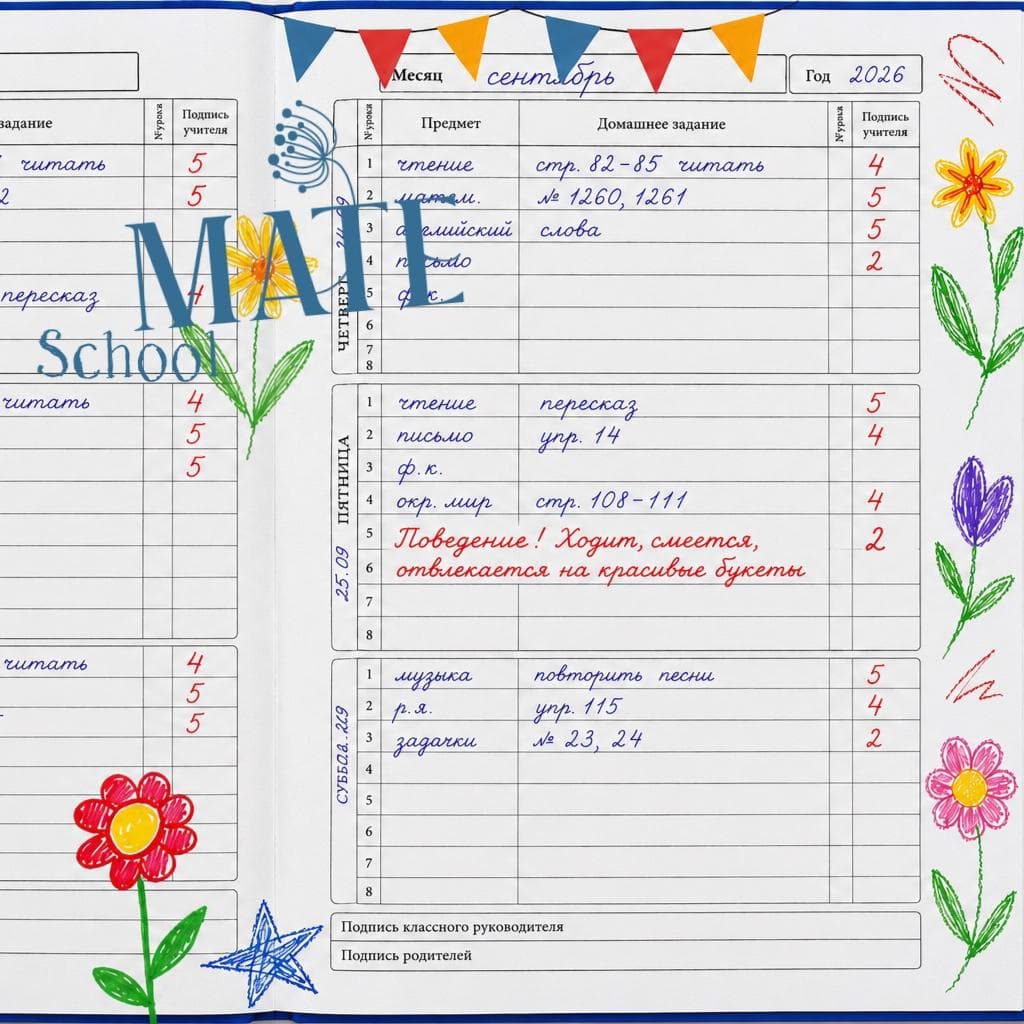 задание
№урока
Подпись
учителя
читать 5
2 5
пересказ 4
читать 4
5
5
читать 4
5
5
MATL
School
Месяц сентябрь Год 2026
№урока Предмет Домашнее задание №урока Подпись учителя
ЧЕТВЕРГ 24.09
1 чтение стр. 82-85 читать 4
2 матем. № 1260, 1261 5
3 английский слова 5
4 письмо 2
5 ф.к.
6
7
8
ПЯТНИЦА 25.09
1 чтение пересказ 5
2 письмо упр. 14 4
3 ф.к.
4 окр. мир стр. 108-111 4
5 Поведение! Ходит, смеется, 2
6 отвлекается на красивые букеты
7
8
1 музыка повторить песни 5
2 р.я. упр. 115 4
3 задачки № 23, 24 2
4
5
6
7
8
Подпись классного руководителя
Подпись родителей